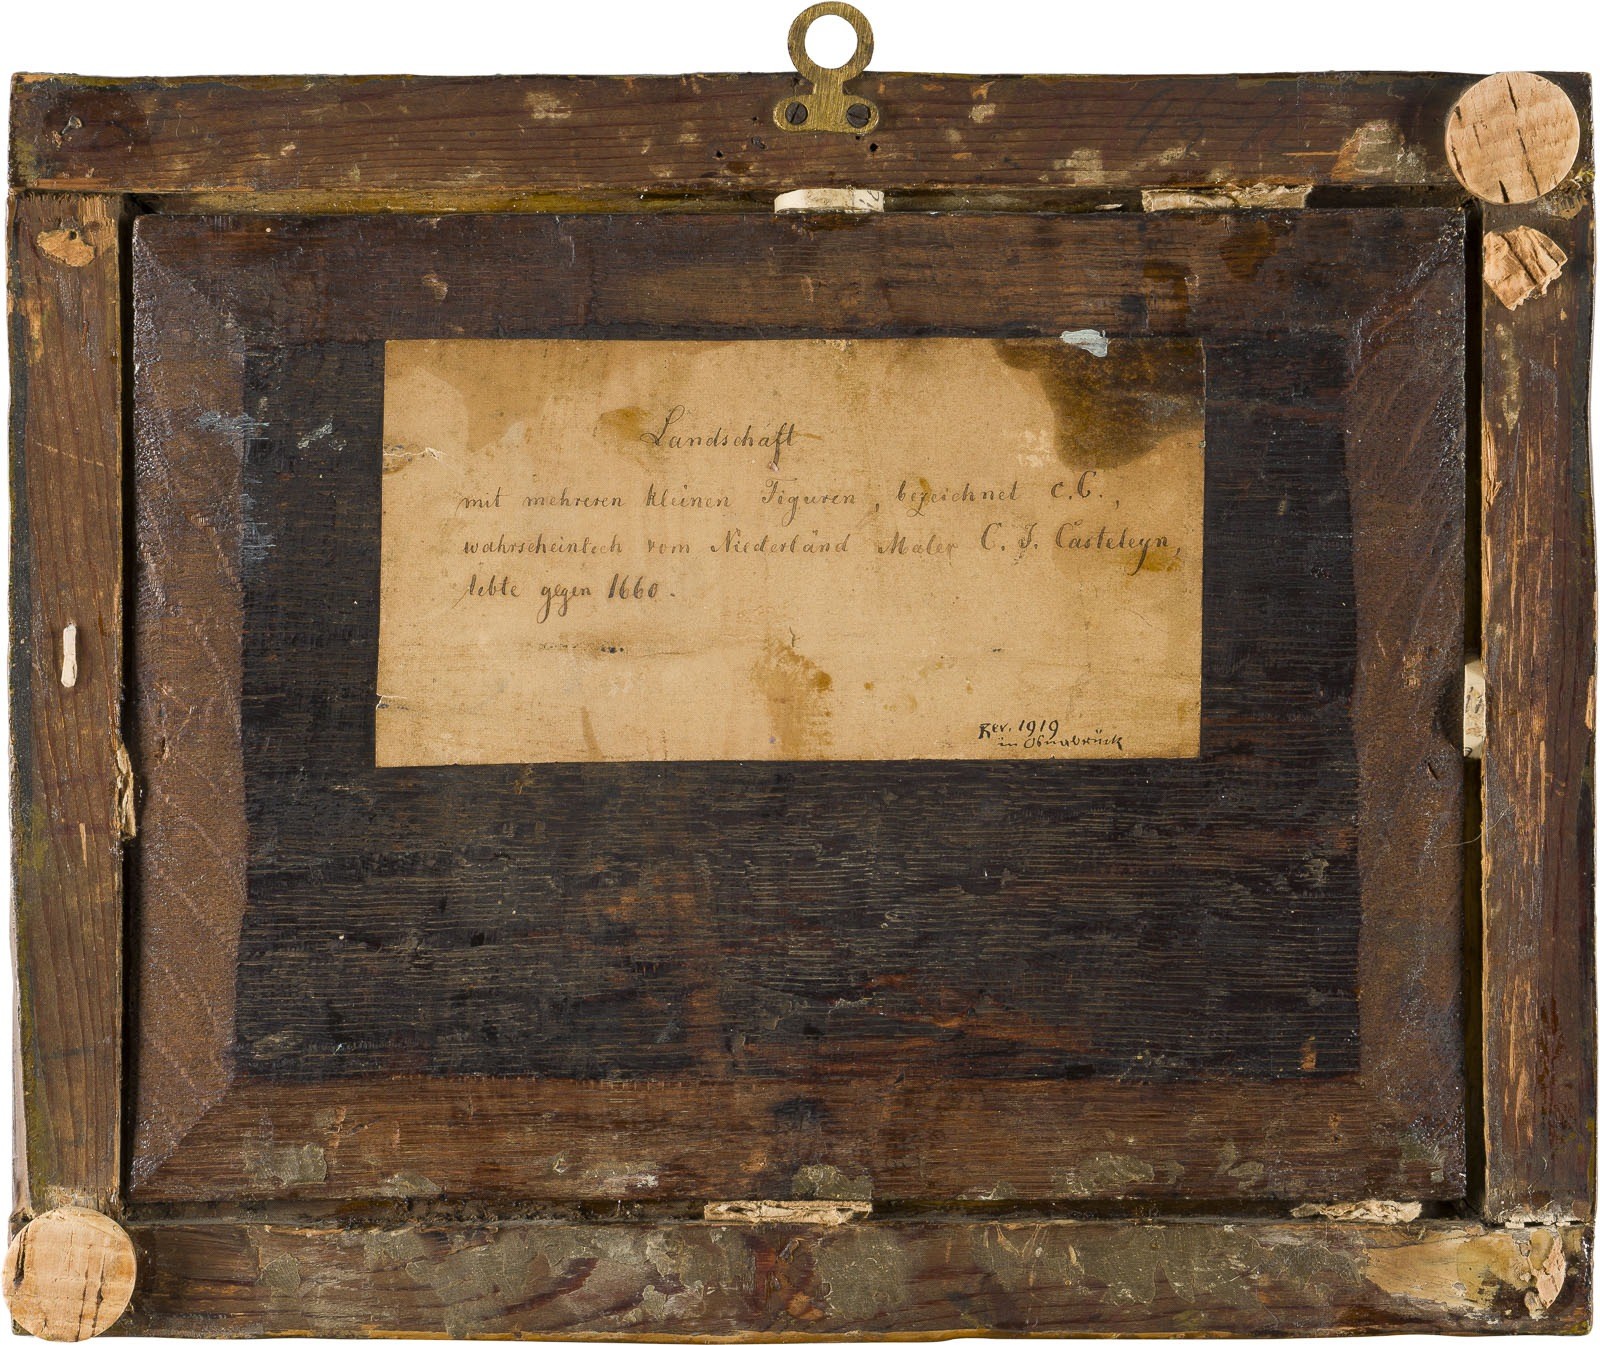 Landschaft
mit mehreren kleinen Figuren, bezeichnet C.C.,
wahrscheinlich vom Niederländ Maler C. J. Casteleyn,
lebte gegen 1660.
Rev. 1919
in Osnabrück